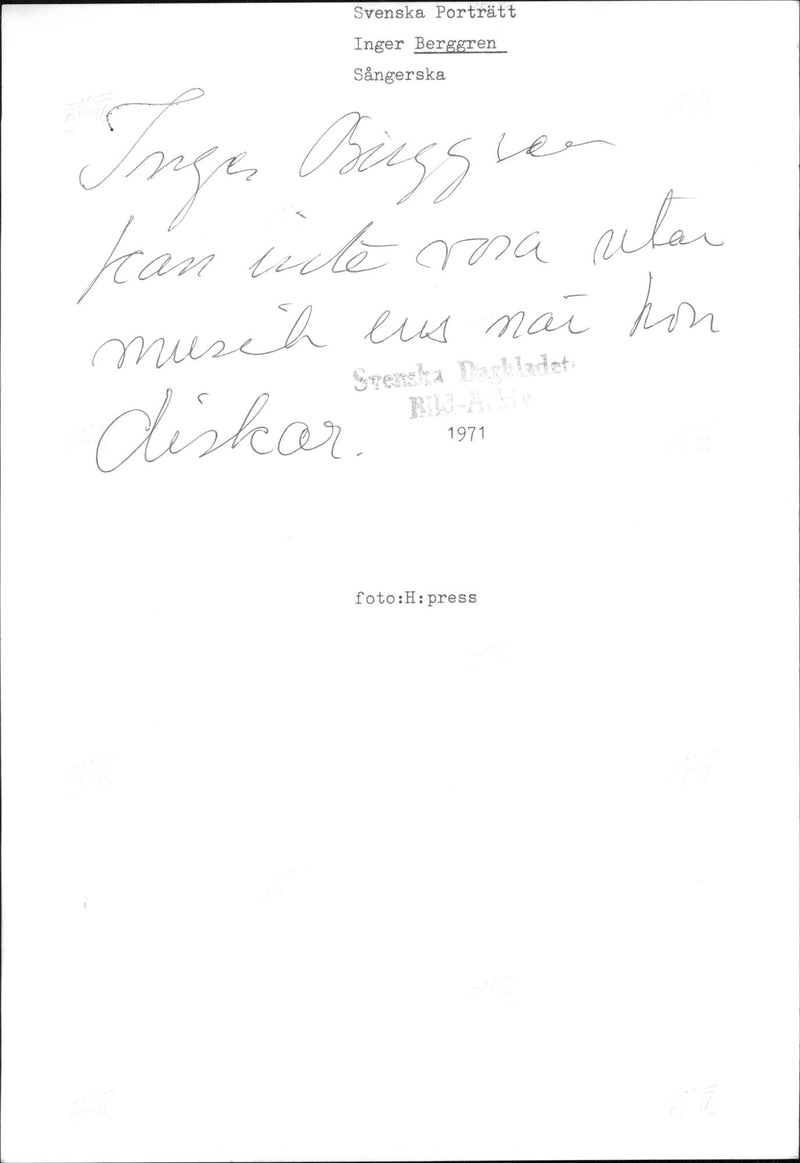 Svenska Porträtt
Inger Berggren
Sångerska
Inger Berggren
kan inte vara utan
musik ens när hon
diskar.
Svenska Dagbladet
Bild-Arkiv
1971
foto:H:press